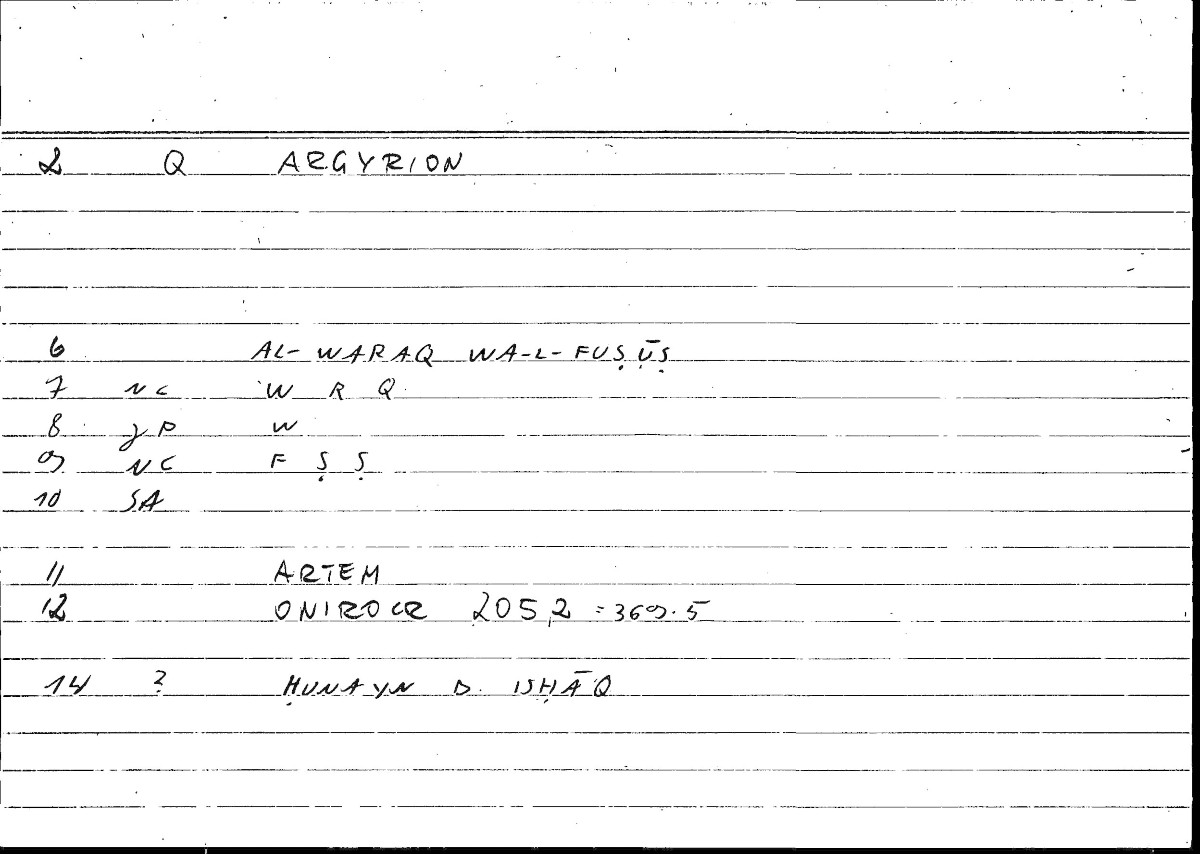 2 Q ARGYRION
6 AL-WARAQ WA-L-FUṢŪṢ
7 NC W R Q
8 γP W
9 NC F Ṣ Ṣ
10 SA
11 ARTEM
12 ONIROCR 205,2 = 369.5
14 ? ḤUNAYN B. ISḤĀQ